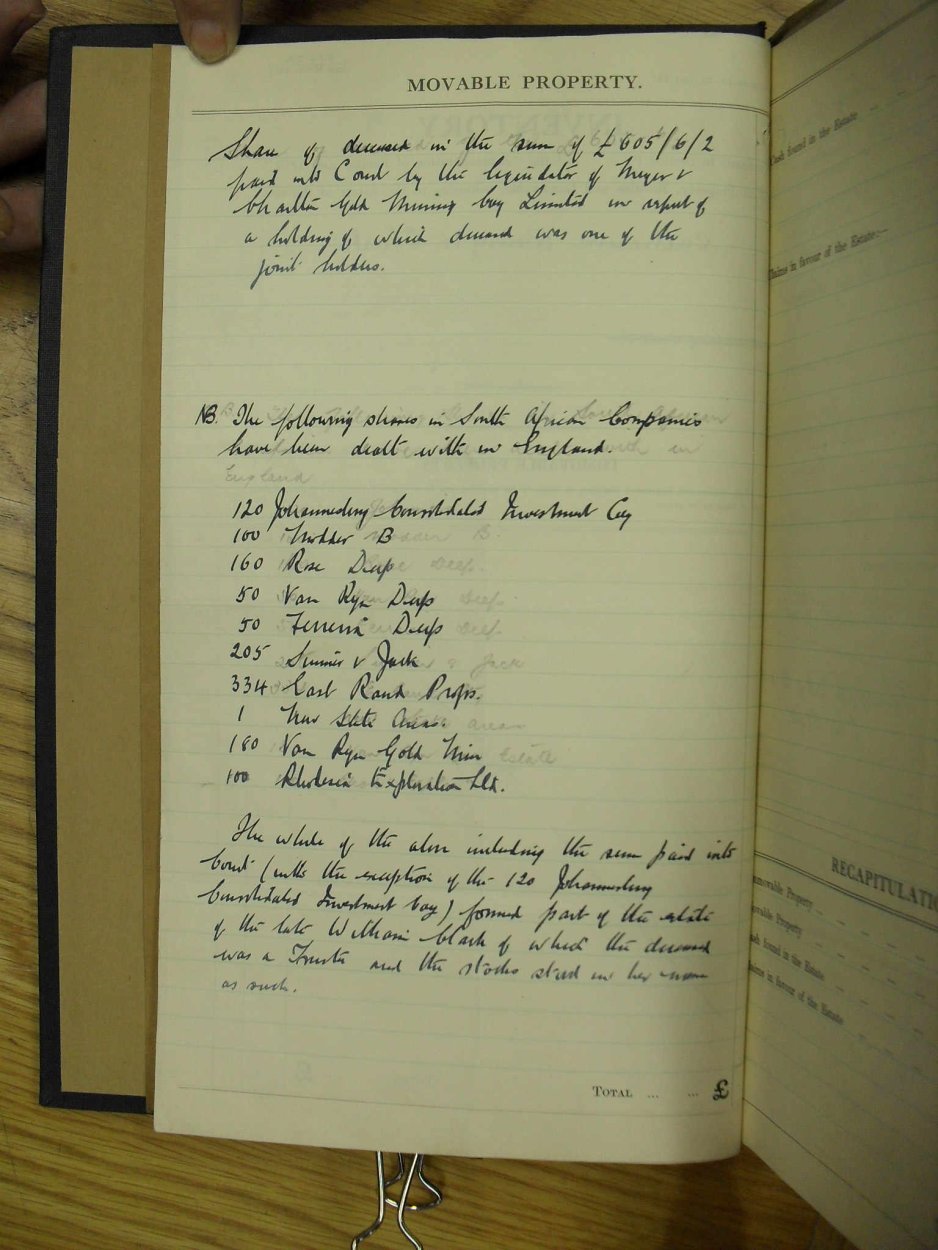 MOVABLE PROPERTY.
Share of deceased in the sum of £605/6/2
paid into Court by the liquidator of Meyer &
Charlton Gold Mining Coy Limited in respect of
a holding of which deceased was one of the
joint holders.
NB. The following shares in South African Companies
have been dealt with in England.
England
120 Johannesburg Consolidated Investment Coy
100 Modder B
160 Rose Deep
50 Van Ryn Deep
50 Ferreira Deep
205 Simmer & Jack
334 East Rand Props.
1 New State Areas.
180 Van Ryn Gold Mine
100 Rhodesia Exploration Ltd.
The whole of the above including the sum paid into
Court (with the exception of the 120 Johannesburg
Consolidated Investment Coy) formed part of the estate
of the late William Clark of which the deceased
was a Trustee and the stocks stood in her name
as such.
TOTAL ... ... £
Cash found in the Estate
Claims in favour of the Estate:—
RECAPITULATIO
Immovable Property
Movable Property
Cash found in the Estate
Claims in favour of the Estate